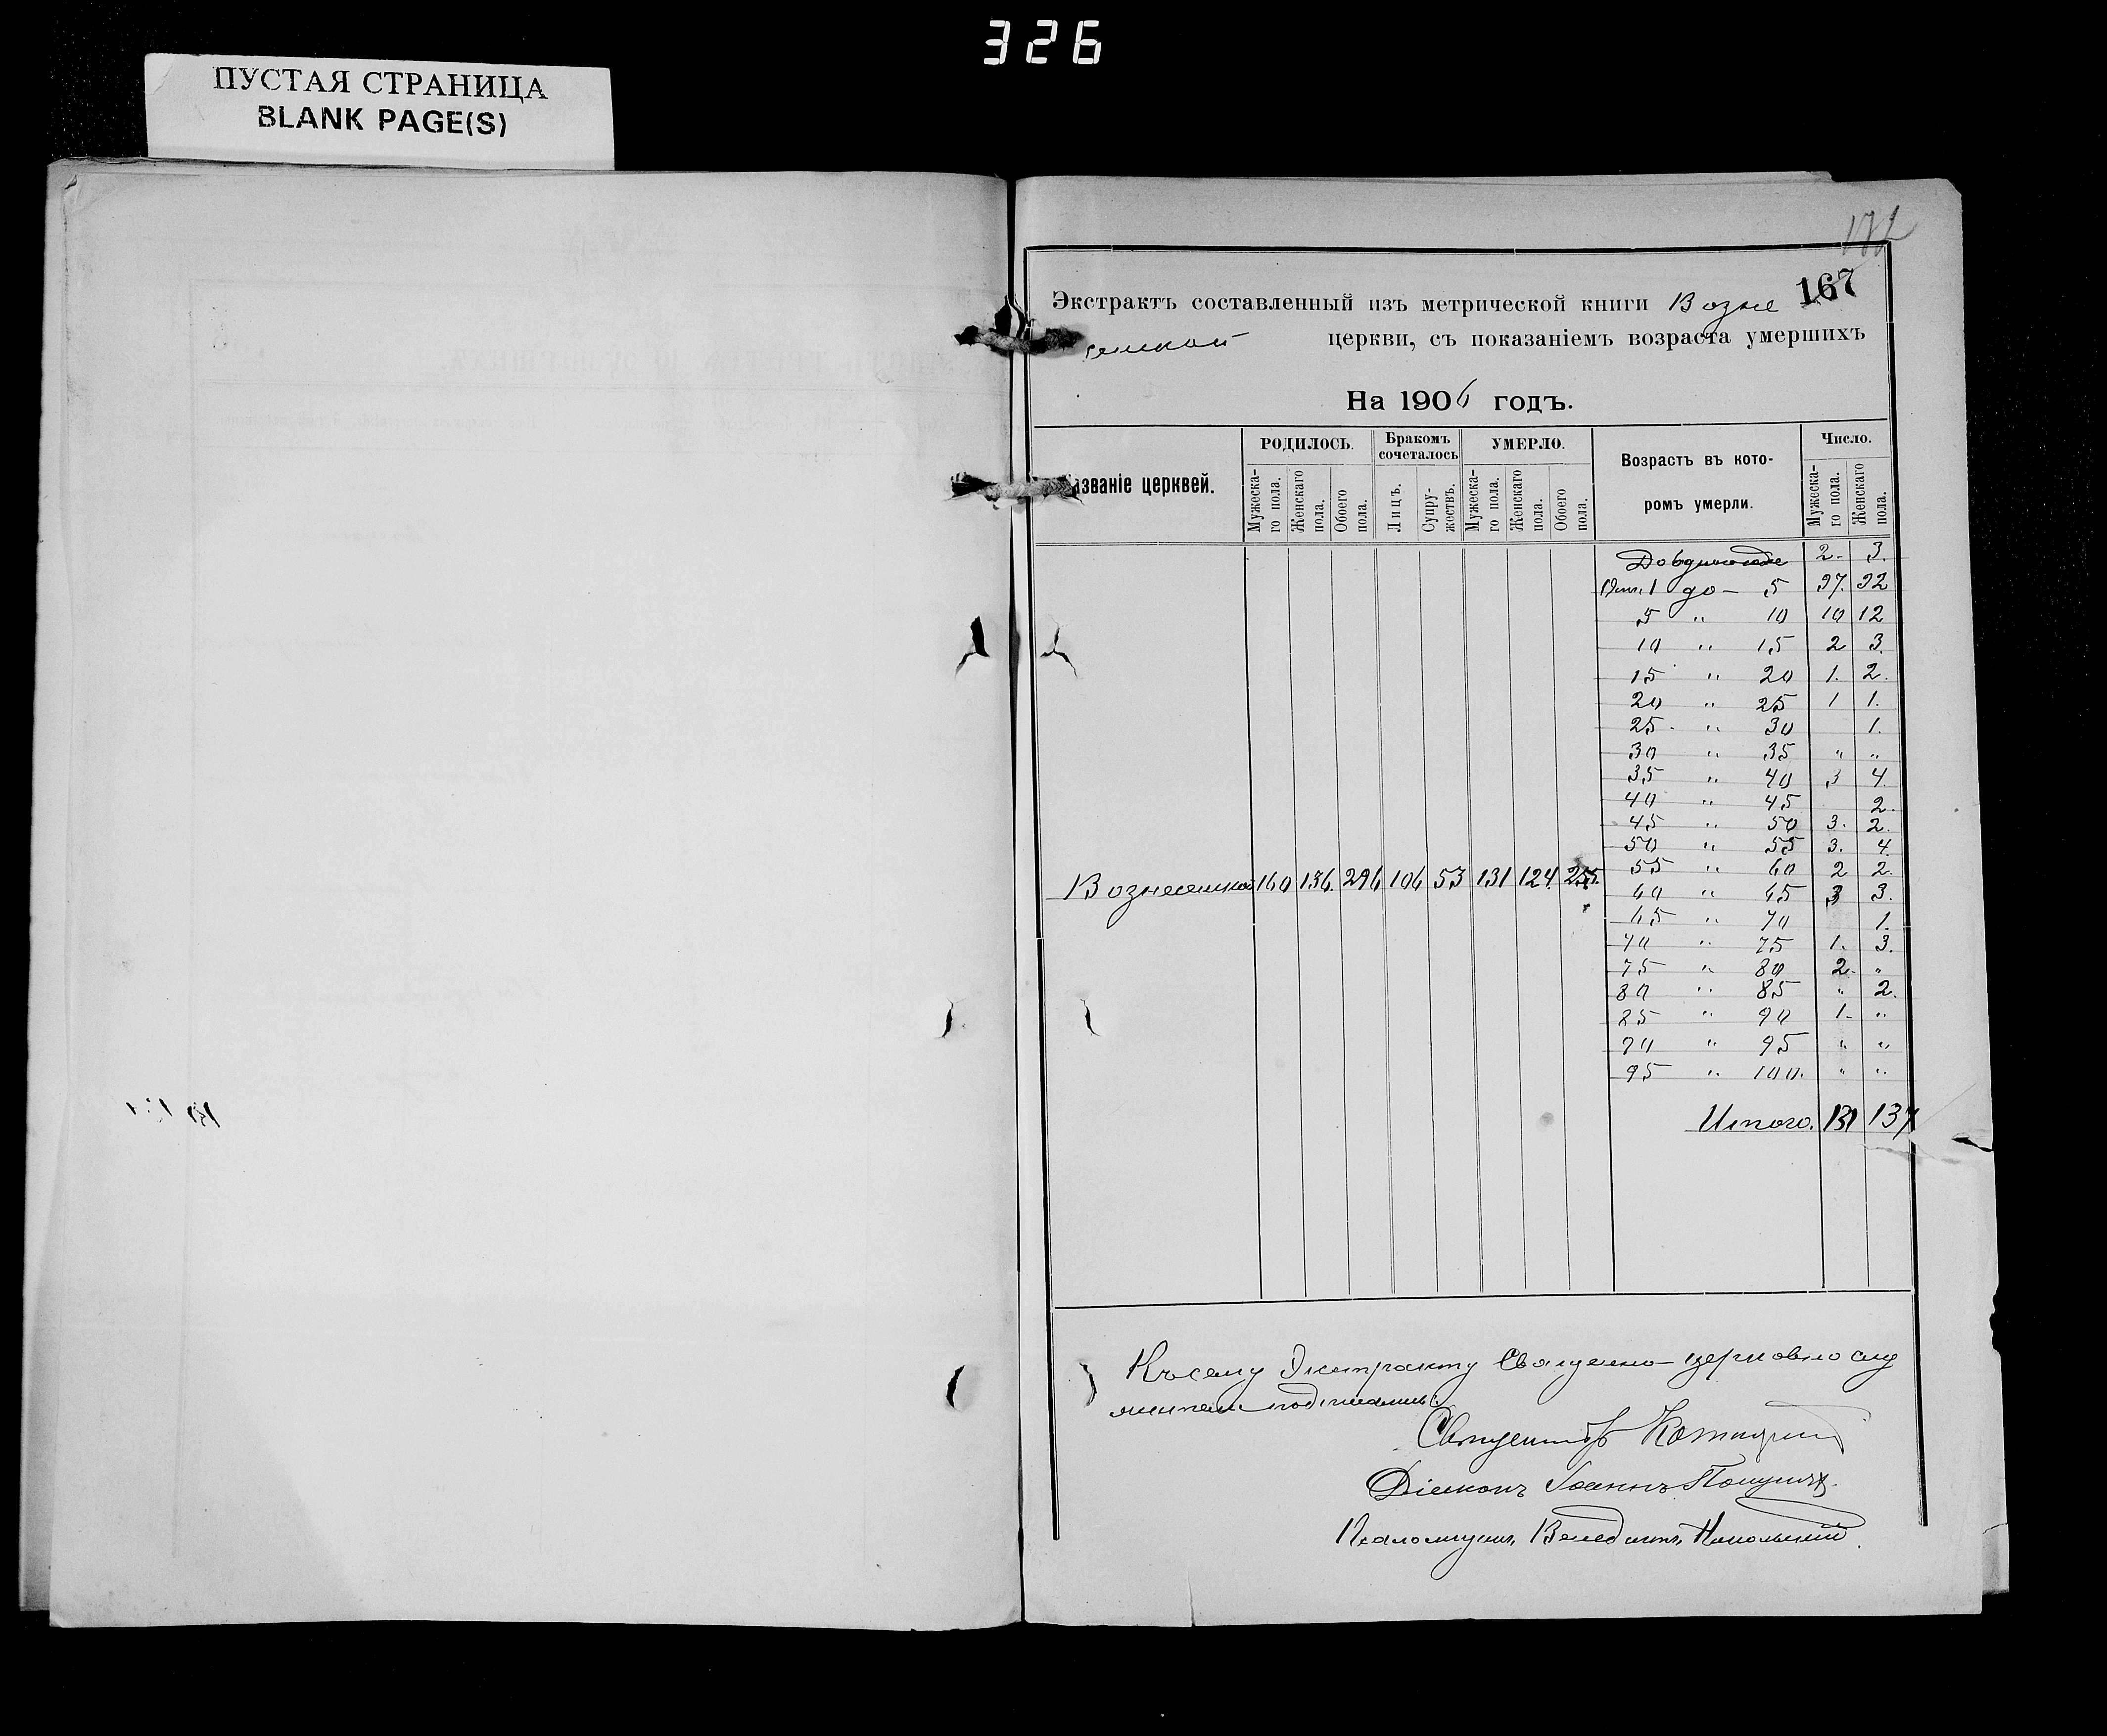 326
ПУСТАЯ СТРАНИЦА
BLANK PAGE(S)
167
Экстрактъ составленный изъ метрической книги Возне
сенской церкви, съ показаніемъ возраста умершихъ
На 1906 годъ.
Названіе церквей.
РОДИЛОСЬ.
Бракомъ сочеталось
УМЕРЛО.
Возрастъ въ кото-
ромъ умерли.
Число.
Мужеска-го пола.
Женскаго пола.
Обоего пола.
Лицъ.
Супру-жествъ.
Мужеска-го пола.
Женскаго пола.
Обоего пола.
Мужеска-го пола.
Женскаго пола.
До 2. 3.
От 1 до 5 97. 92
5 " 10 10 12
10 " 15 2 3.
15 " 20 1. 2.
20 " 25 1 1.
25 " 30 1.
30 " 35 " "
35 " 40 3 4.
40 " 45 2.
45 " 50 3. 2.
50 " 55 3. 4.
55 " 60 2 2.
Вознесенской 160 136. 296 106 53 131 124. 255.
60 " 65 3 3.
65 " 70 1.
70 " 75 1. 3.
75 " 80 2. "
80 " 85 " 2.
85 " 90 1. "
90 " 95 " "
95 " 100. " "
Итого. 131 137
Къ сему Экстракту Священно-церковно слу
жители подписались:
Священникъ
Діаконъ Іоаннъ
Псаломщикъ Венедиктъ Никольский